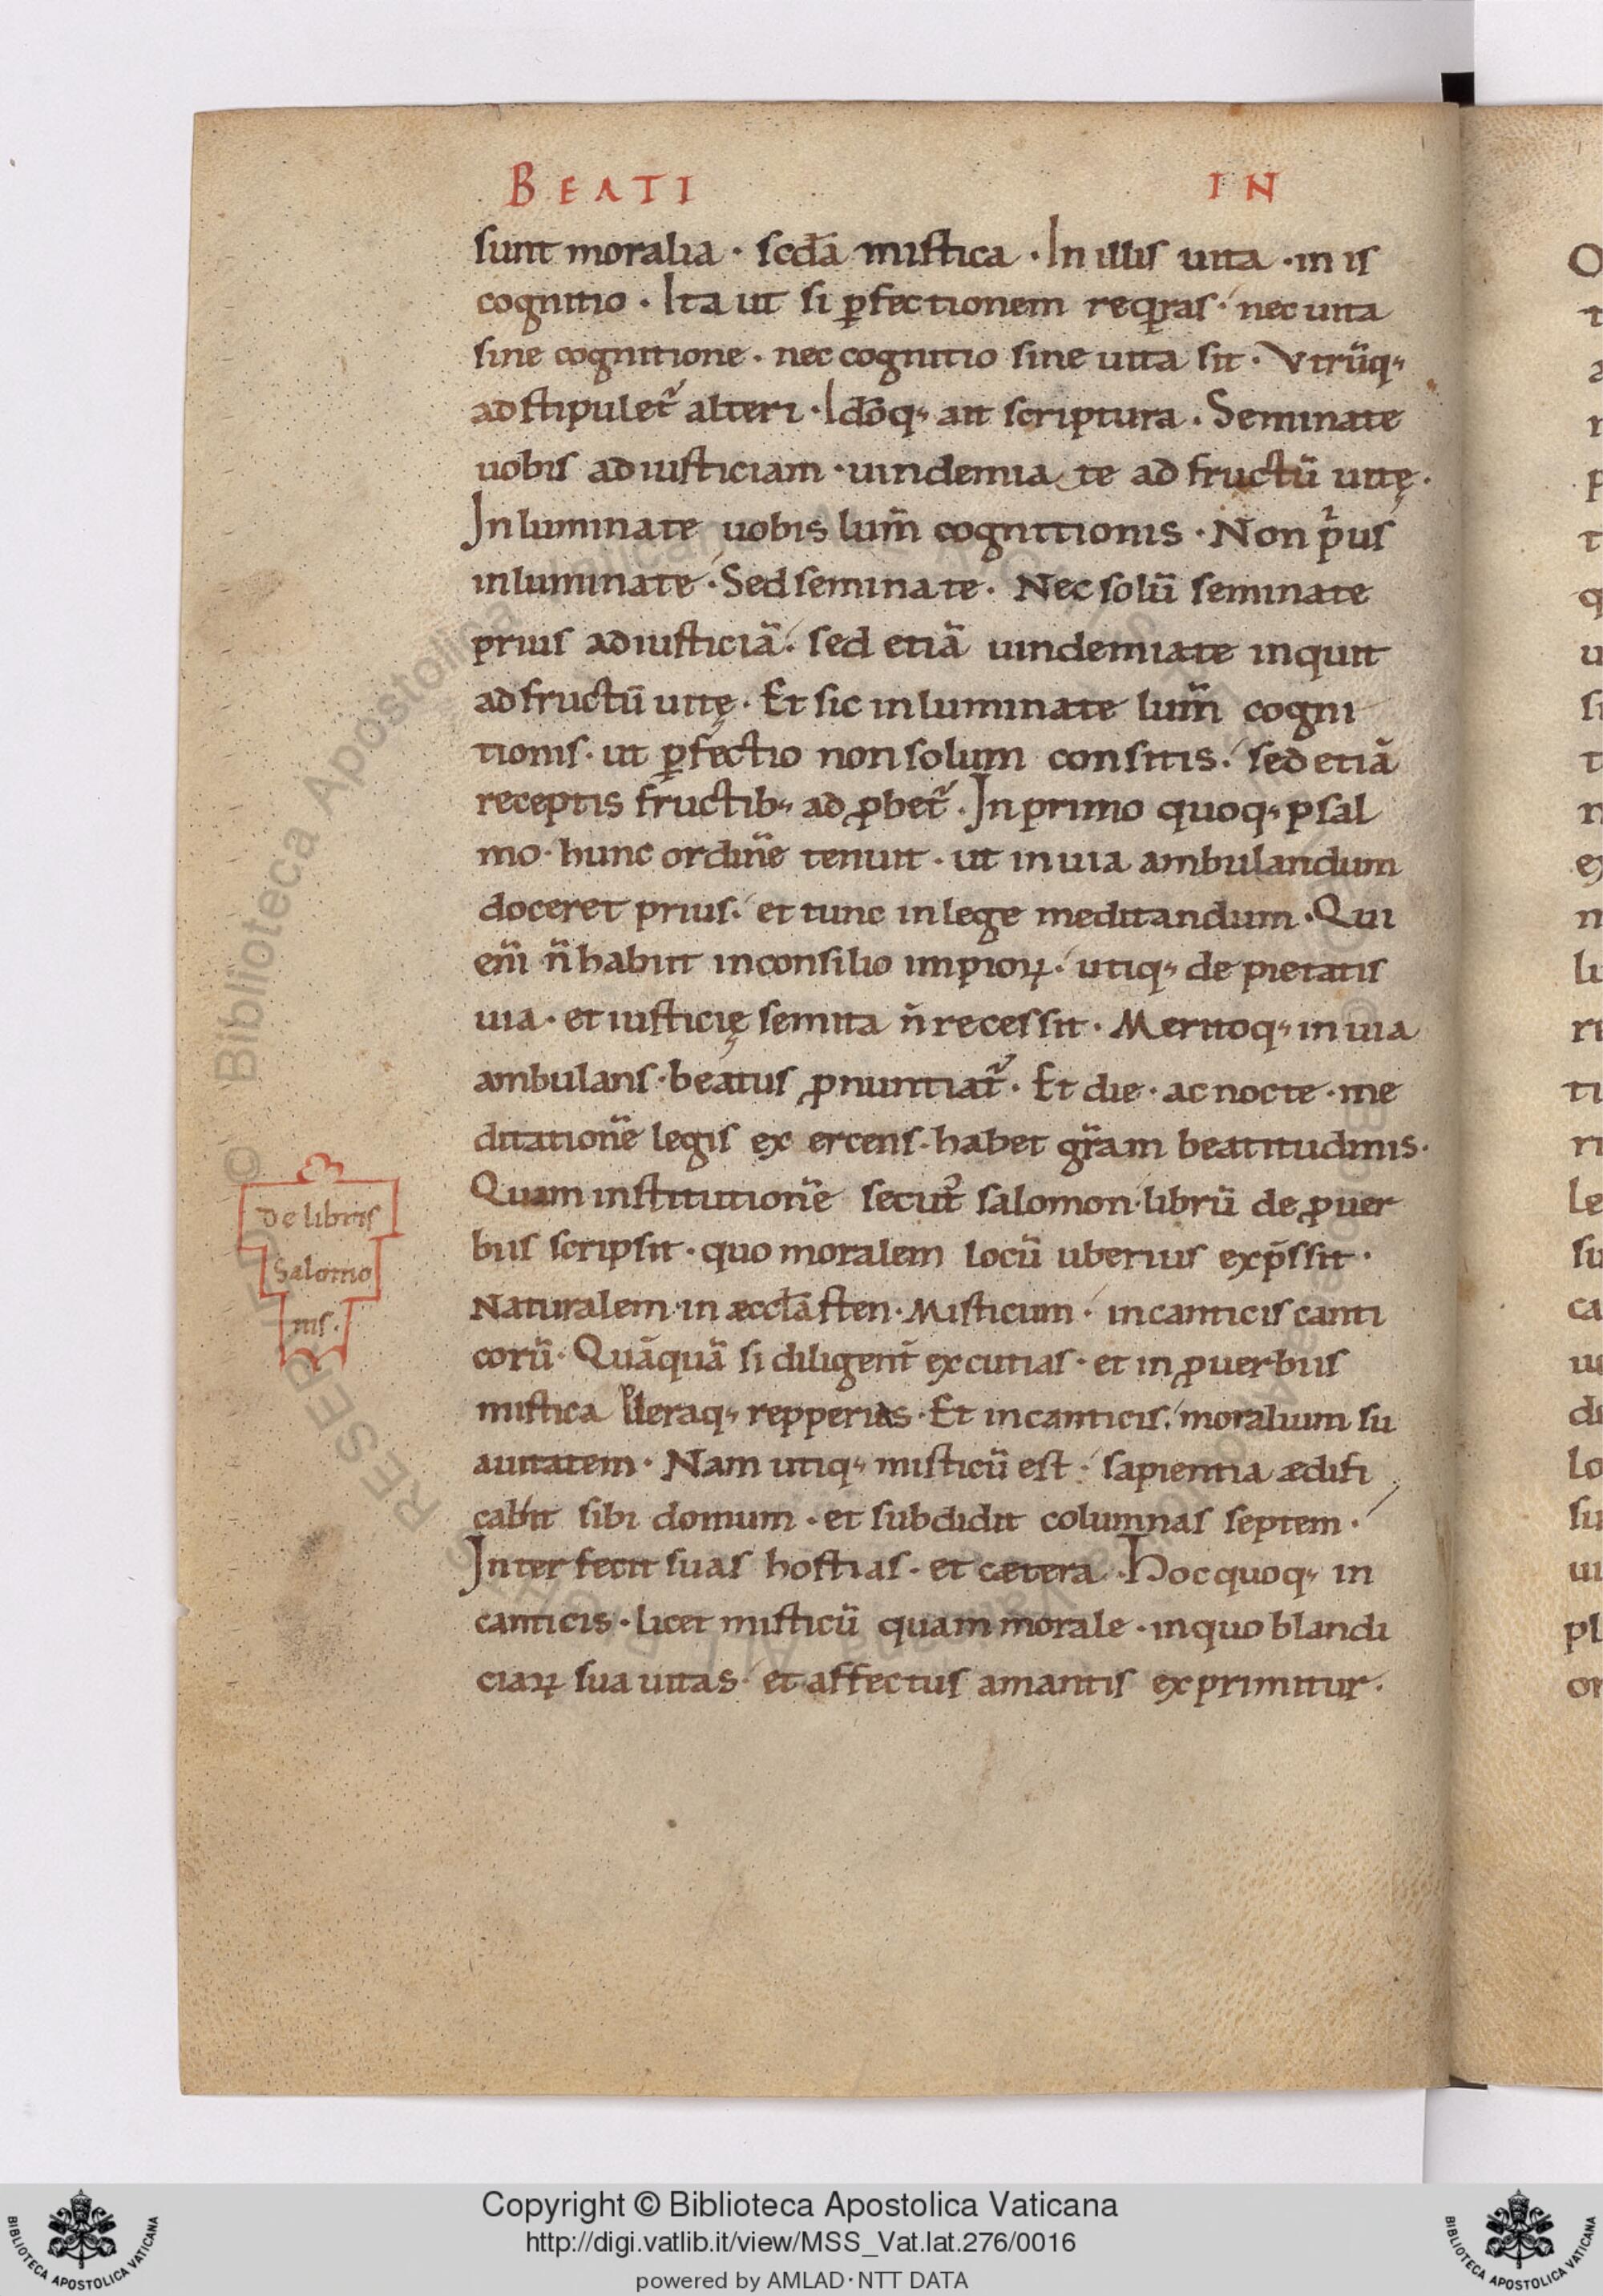 BEATI IN
sunt moralia · scd̄a mistica · In illis uita · in is
cognitio · Ita ut si ꝑfectionem reqͥras · nec uita
sine cognitione · nec cognitio sine uita sit · Vtrūq;
adstipulet᷑ alteri · Idōq; ait scriptura · Seminate
uobis ad iusticiam · uindemiate ad fructū uitę ·
Inluminate uobis lum̄ cognitionis · Non pͥus
inluminate · Sed seminate · Nec solū seminate
prius ad iusticiā · sed etiā uindemiate inquit
ad fructū uitę · Et sic inluminate lum̄ cogni
tionis · ut ꝑfectio non solum consitis · sed etiā
receptis fructib; adꝓbet᷑ · In primo quoq; psal
mo · hunc ordinē tenuit · ut in uia ambulandum
doceret prius · et tunc in lege meditandum · Qui
eni̅ n̄ habiit in consilio impioꝝ · utiq; de pietatis
uia · et iusticię semita n̄ recessit · Meritoq; in uia
ambulans · beatus ꝓnuntiat᷑ · Et die · ac nocte · me
ditationē legis exercens · habet gr̄am beatitudinis ·
Quam institutionē secut᷑ salomon · librū de ꝓuer
biis scripsit · quo moralem locū uberius exp̄ssit ·
Naturalem in æccl̄asten · Misticum · in canticis canti
corū · Quāquā si diligent̄ excutias · et in ꝓuerbiis
mistica pleraq; repperias · Et in canticis · moralium su
auitatem · Nam utiq; misticū est · sapientia ædifi
cabit sibi domum · et subdidit columnas septem ·
Interfecit suas hostias · et cætera · Hoc quoq; in
canticis · licet misticū quam morale · in quo blandi
ciaꝝ suauitas · et affectus amantis exprimitur ·
De libris
Salomo
nis ·
© Biblioteca Apostolica Vaticana
Copyright © Biblioteca Apostolica Vaticana
http://digi.vatlib.it/view/MSS_Vat.lat.276/0016
powered by AMLAD·NTT DATA
BIBLIOTECA APOSTOLICA VATICANA
BIBLIOTECA APOSTOLICA VATICANA